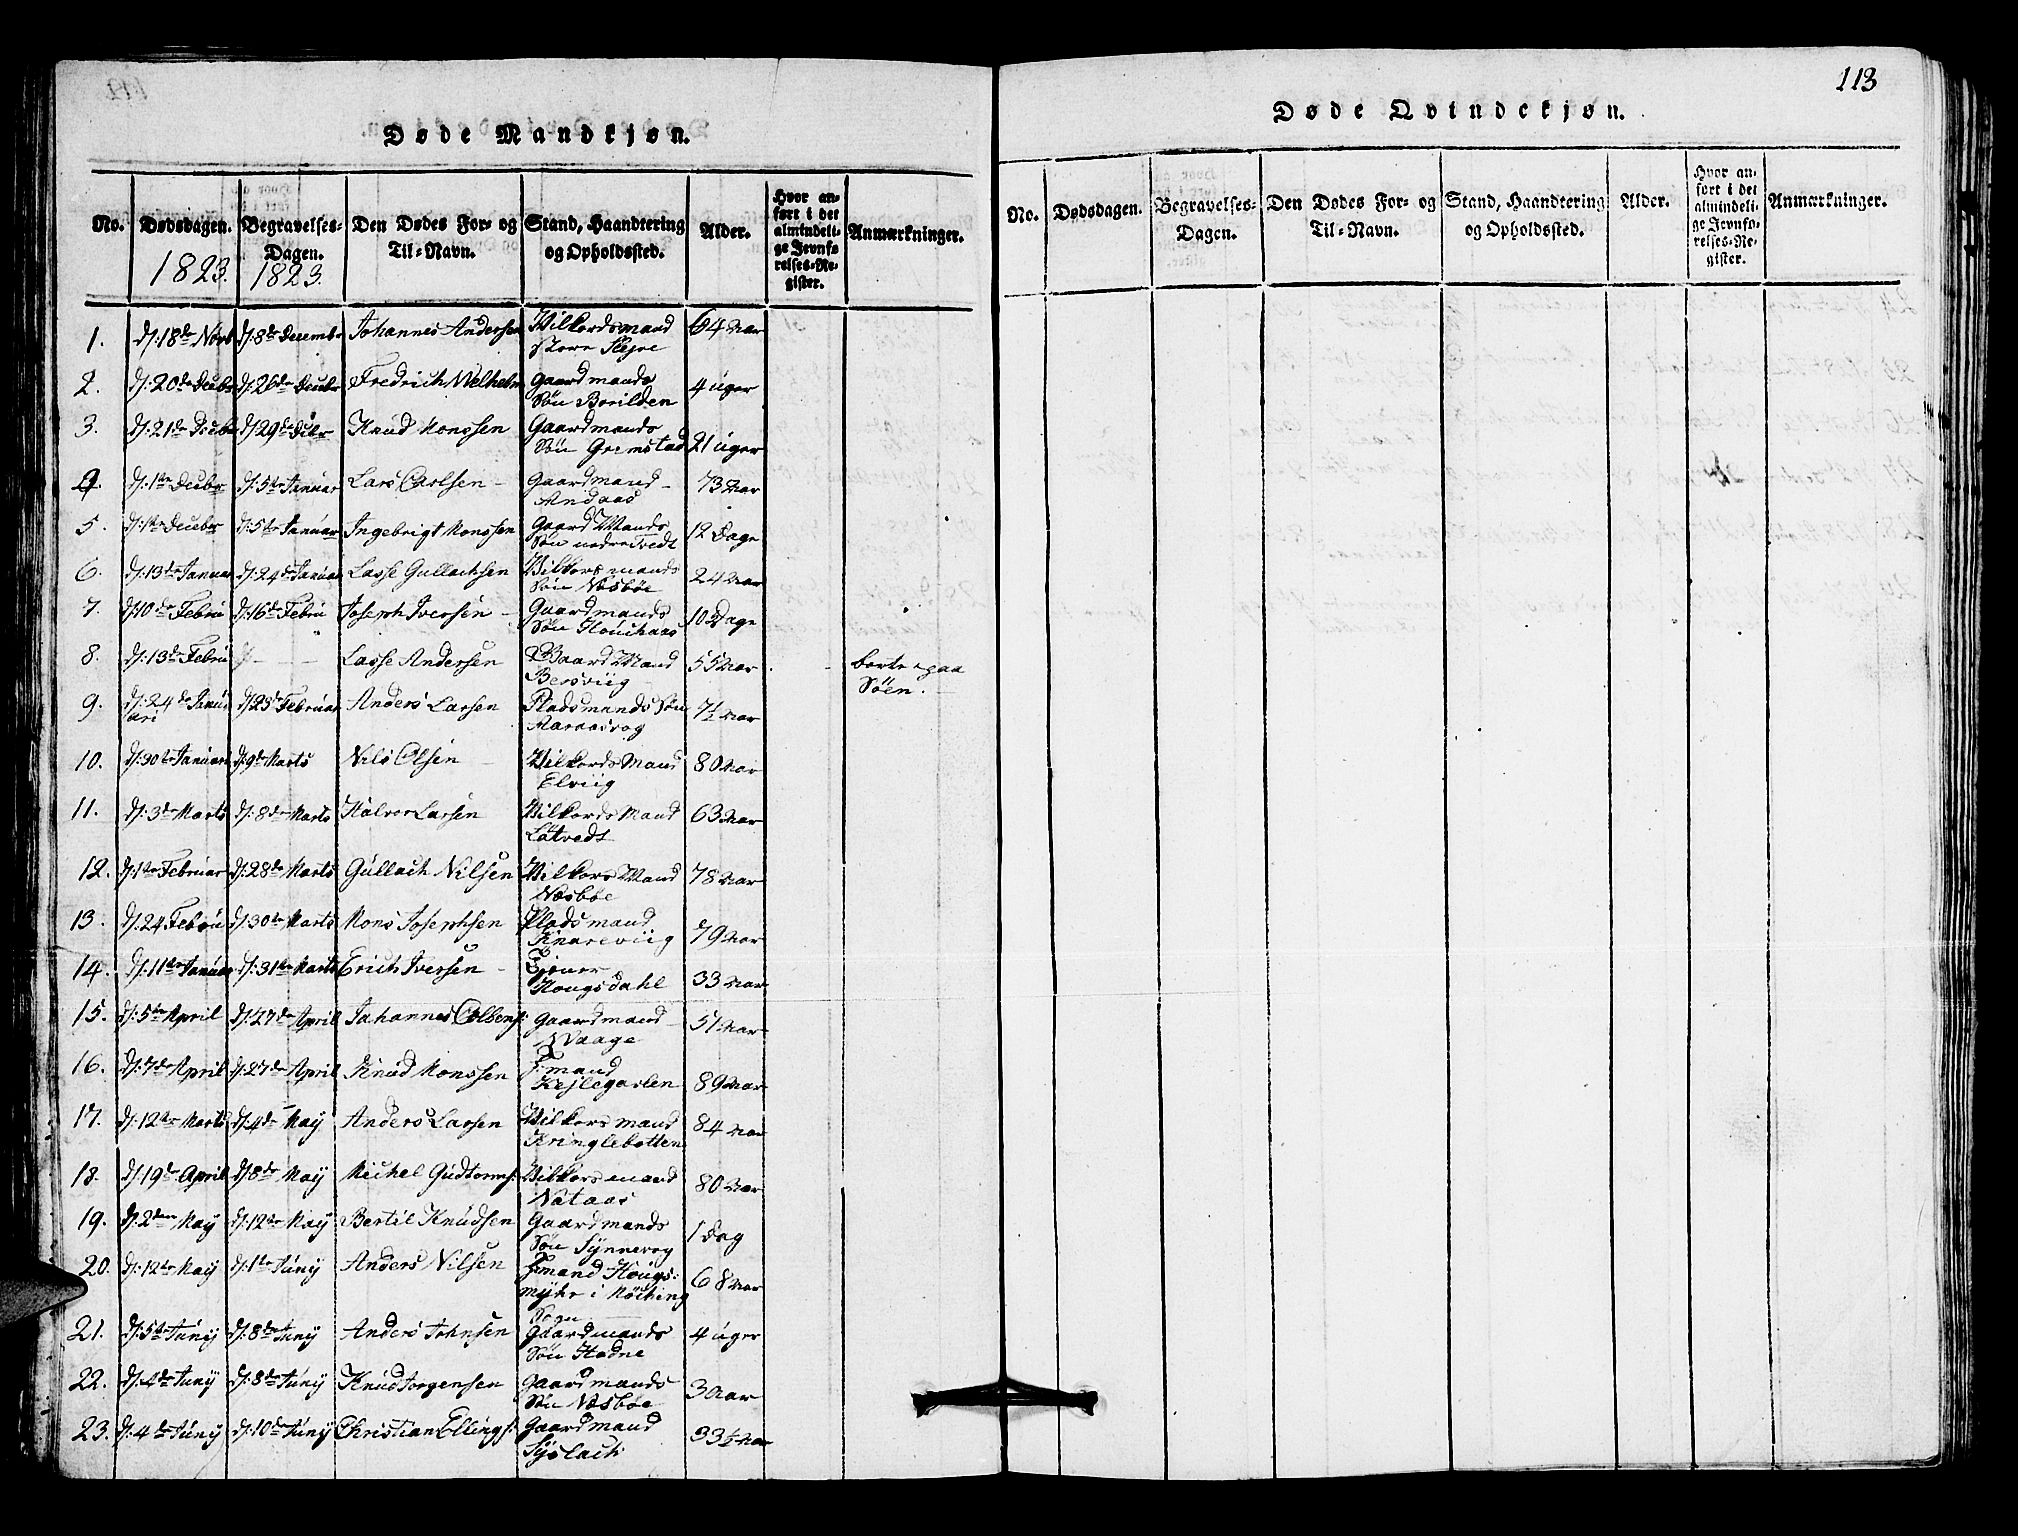 113
Døde Mandkjøn.
No.
Dødsdagen.
1823.
Begravelses-
Dagen.
1823.
Den Dødes For- og
Til-Navn.
Stand, Haandtering
og Opholdssted.
Alder.
Hvor an-
ført i det
almindeli-
ge Jevnfø-
relses-Re-
gister.
Anmærkninger.
1. d/: 18de Novb d/: 8de Decembr Johannes Andersen Vilkordsmand 64 Aar
d/: 20de Decbr d/: 26de Decbr Fredrich Welhelm Gaardmands
2. Søn Borilden 4 uger
3. d/: 21de Decbr d/ 29de Decbr Knud Monssen Gaardmands
Søn Gremstad 21 uger
4. d/: 1te Decbr d/: 5te Januar Lars Carlsen Gaardmand 73 Aar
Andaas
5. d/: 1te Decebr d/: 5te Januar Ingebrigt Monssen Gaard Mands
Søn nedre Tvedt 12 Dage
6. d/: 13de Januar d/: 24de Januar Lasse Gullachsen Vilkors mands
Søn Næsbøe 24 Aar
7. d/: 10de Febru d/: 16de Febru Joseph Iversen Gaardmands
Søn Houchaas 10 Dage
8. d/: 13de Febru Lasse Andersen Gaard Mand 55 Aar borte paa
Bersviig Søen.
9. d/: 24de Janu d/ 23de Februar Anders Larsen Pladsmands Søn 7½ Aar
ari
10. d/: 30te Januari d/: 9de Marts Nils Olsen Vilkords Mand 80 Aar
Elviig
11. d/: 3de Marts d/: 8de Marts Halvor Larsen Vilkords Mand 63 Aar
Løtvedt
12. d/: 1te Februar d/: 28de Marts Gullach Nilsen Vilkors Mand 78 Aar
Næsbøe
13. d/: 24 Febru d/: 30te Marts Mons Josephsen Pladsmand
Knareviig 79 Aar
14. d/: 11te Januar d/: 31te Marts Erich Iversen
Hougsdahl 33 Aar
15. d/: 5te April d/: 27de April Johannes Colbens: Gaardmand 51 Aar
Waage
16. d/: 7de April d/: 27de April Knud Monssen F:mand
Kejlegavlen 89 Aar
17. d/: 12te Marts d/: 4de May Anders Larsen Vilkors mand 84 Aar
Kringlebotten
18. d/: 19de April d/: 8de May Michel Gudtorms: Vilkors mand 80 Aar
Nataas
19. d/: 2den May d/: 12te May Bertil Knudsen Gaardmands 1 dag
Søn Synnevog
20. d/: 12te May d/: 1te Juny Anders Nilsen F:mand Hougs: 68 Aar
myhr i Møching
Sogn
21. d/: 5te Juny d/: 8de Juny Anders Johnsen Gaardmands 4 uger
Søn Hodne
22. d/: 4de Juny d/: 8de Juny Knud Jorgensen Gaardmands 3 Aar
Søn Næsbøe
23. d/: 4de Juny d/: 10de Juny Christian Ellings: Gaardmand 33½ Aar
Syslach
Døde Qvindekjøn.
No.
Dødsdagen.
Begravelses-
Dagen.
Den Dødes For- og
Til-Navn.
Stand, Haandtering
og Opholdssted.
Alder.
Hvor an-
ført i det
almindeli-
ge Jevnfø-
relses-Re-
gister.
Anmærkninger.